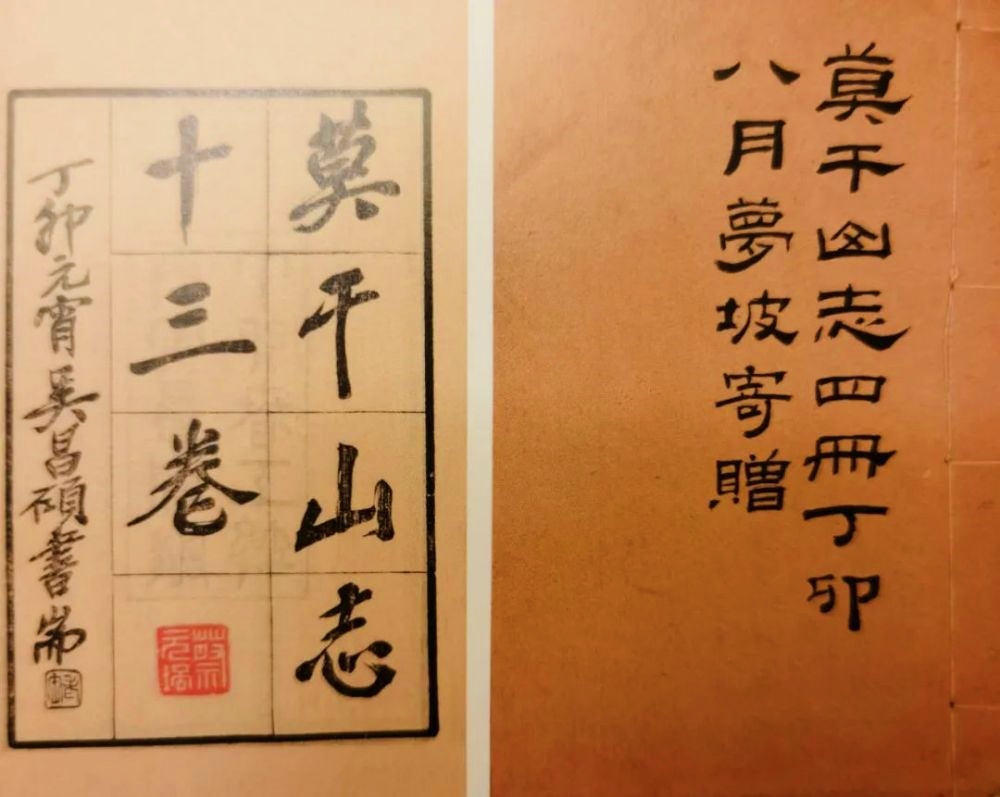 莫干山志四冊丁卯
八月夢坡寄贈
莫干山志
十三卷
丁卯元宵吳昌碩書耑